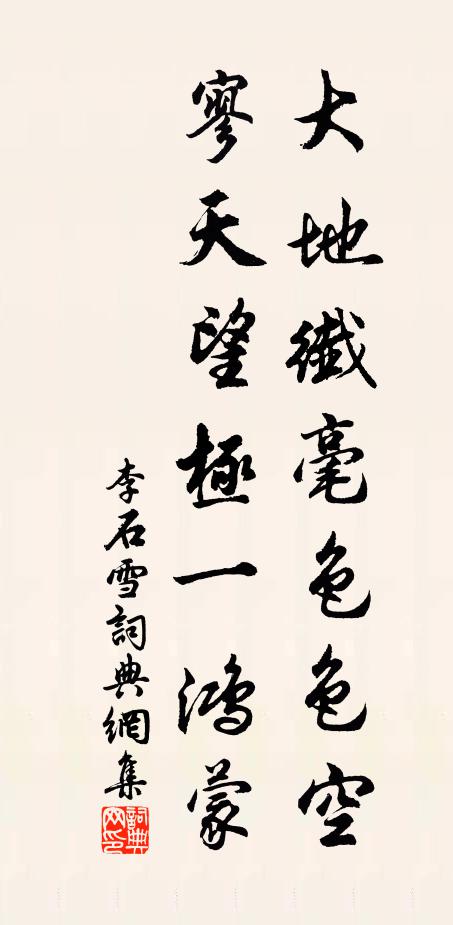 大地纖毫色色空
寥天望極一鴻蒙
李石雪詞典網集
詞典网印